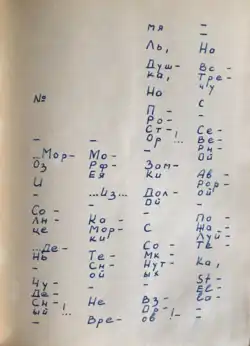 №
–
...Мор-
оз
И
–
Со-
лн-
це
...Де-
нь
–
Чу-
Де-
Сн-
ый!...!
–
–
Мо-
РФ-
ЕЯ
–
...Из...
–
Ка-
Мор-
ки
–
Те-
Сн-
ой
–
Не
–
Вре-
мя
–
Ль,
–
Душ-
ка,
–
На
–
П-
Ро-
Ст-
Ор!...
–
Зам-
Ки
–
Дол-
ой
–
С
–
Со-
Мк-
Нут-
ых
–
Вз-
Ор-
ов!–
–
–
На
–
Вс-
Тре-
чу
–
С
–
Се-
Ве-
Рн-
ой
–
Ав-
Рор-
ой
–
По-
Жа-
Луй-
Ть-
–
Ка,
–
St-
El-
La-